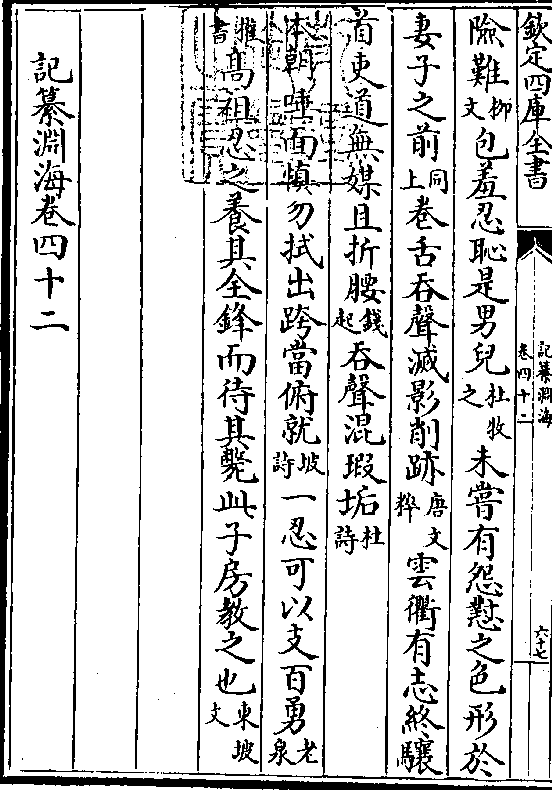 欽定四庫全書
記纂淵海
卷四十二
六十七
險難柳文包羞忍恥是男兒杜牧之未嘗有怨懟之色形於
妻子之前同上卷舌吞聲滅影削跡唐文粹雲衢有志終驤
首吏道無媒且折腰錢起吞聲混瑕垢杜詩
本朝唾面慎勿拭出跨當俯就坡詩一忍可以支百勇老泉
權書高祖忍之養其全鋒而待其斃此子房教之也東坡文
記纂淵海卷四十二